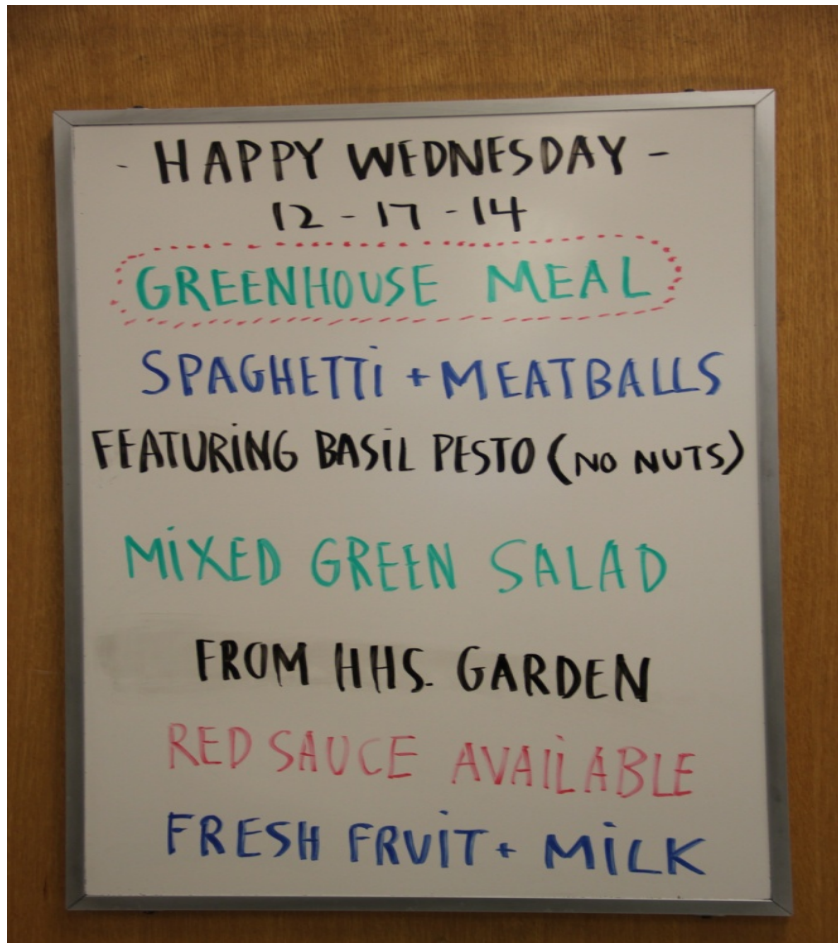 - HAPPY WEDNESDAY -
12 - 17 - 14
GREENHOUSE MEAL
SPAGHETTi + MEATBALLS
FEATURiNG BASiL PESTO (NO NUTS)
MiXED GREEN SALAD
FROM HHS. GARDEN
RED SAUCE AVAiLABLE
FRESH FRUiT + MiLK